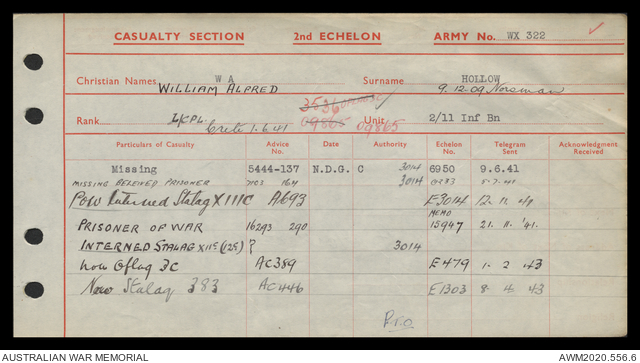 CASUALTY SECTION 2nd ECHELON ARMY No. WX 322
Christian Names W A Surname HOLLOW
WILLIAM ALFRED 9.12.09 Norseman
Rank L/CPL. Unit 2/11 Inf Bn
Crete 1.6.41 09865 09865
Particulars of Casualty Advice No. Date Authority Echelon No. Telegram Sent Acknowledgment Received
Missing 5444-137 N.D.G. C 3014 6950 9.6.41
MISSING BELIEVED PRISONER 164 3014
POW Interned Stalag XIIIC A693 E3014 12. 11. 41
MEMO
PRISONER OF WAR 16293 290 15947 21. 11. '41.
INTERNED STALAG ? 3014
now Oflag 3C AC389 E479 1. 2 43
Now Stalag 383 AC446 E1303 8. 4. 43
P.T.O
AUSTRALIAN WAR MEMORIAL AWM2020.556.6